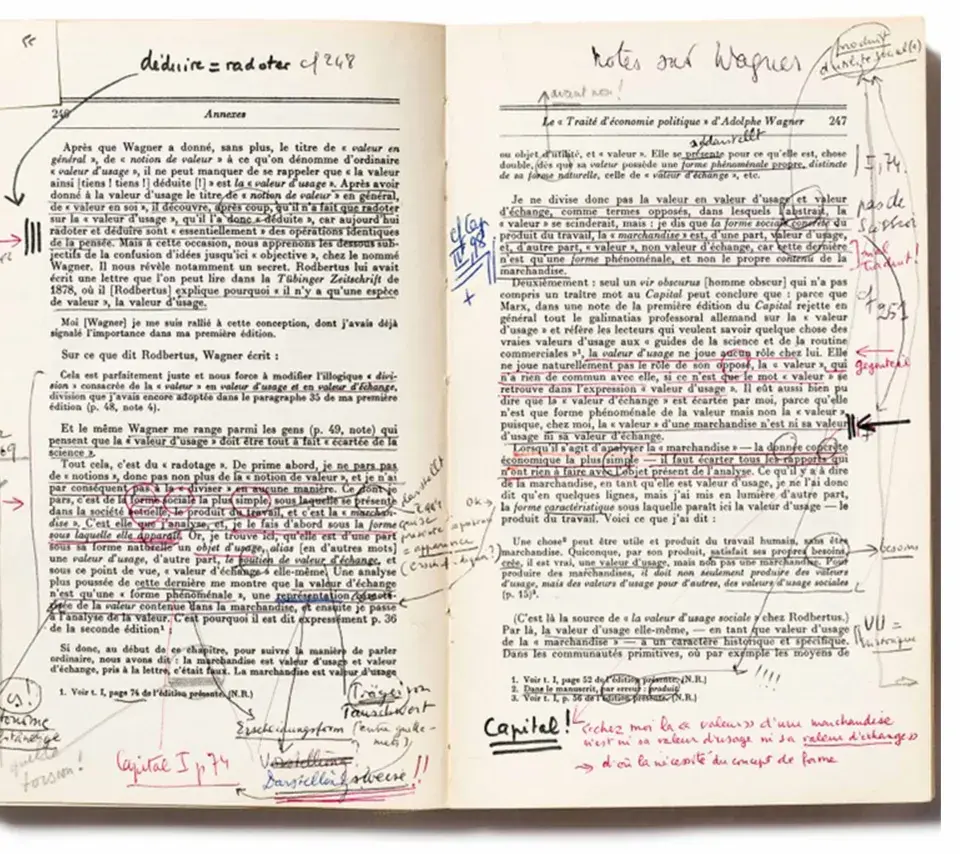 déduire = radoter cf 248
246
Annexes
Après que Wagner a donné, sans plus, le titre de « valeur en
général », de « notion de valeur » à ce qu'on dénomme d'ordinaire
« valeur d'usage », il ne peut manquer de se rappeler que « la valeur
ainsi [tiens ! tiens !] déduite [!] » est la « valeur d'usage ». Après avoir
donné à la valeur d'usage le titre de « notion de valeur » en général,
de « valeur en soi », il découvre, après coup, qu'il n'a fait que radoter
sur la « valeur d'usage », qu'il l'a donc « déduite », car aujourd'hui
radoter et déduire sont « essentiellement » des opérations identiques
de la pensée. Mais à cette occasion, nous apprenons les dessous sub-
jectifs de la confusion d'idées jusqu'ici « objective », chez le nommé
Wagner. Il nous révèle notamment un secret. Rodbertus lui avait
écrit une lettre que l'on peut lire dans la Tübinger Zeitschrift de
1878, où il [Rodbertus] explique pourquoi « il n'y a qu'une espèce
de valeur », la valeur d'usage.
Moi [Wagner] je me suis rallié à cette conception, dont j'avais déjà
signalé l'importance dans ma première édition.
Sur ce que dit Rodbertus, Wagner écrit :
Cela est parfaitement juste et nous force à modifier l'illogique « divi-
sion » consacrée de la « valeur » en valeur d'usage et en valeur d'échange,
division que j'avais encore adoptée dans le paragraphe 35 de ma première
édition (p. 48, note 4).
Et le même Wagner me range parmi les gens (p. 49, note) qui
pensent que la « valeur d'usage » doit être tout à fait « écartée de la
science ».
Tout cela, c'est du « radotage ». De prime abord, je ne pars pas
de « notions », donc pas non plus de la « notion de valeur », et je n'ai
par conséquent pas à la « diviser » en aucune manière. Ce dont je
pars, c'est de la forme sociale la plus simple sous laquelle se présente
dans la société actuelle, le produit du travail, et c'est la « marchan-
dise ». C'est elle que j'analyse, et, je le fais d'abord sous la forme
sous laquelle elle apparaît. Or, je trouve ici, qu'elle est d'une part
sous sa forme naturelle un objet d'usage, alias [en d'autres mots]
une valeur d'usage, d'autre part, le soutien de valeur d'échange, et
sous ce point de vue, « valeur d'échange » elle-même. Une analyse
plus poussée de cette dernière me montre que la valeur d'échange
n'est qu'une « forme phénoménale », une représentation
de la valeur contenue dans la marchandise, et ensuite je passe
à l'analyse de la valeur. C'est pourquoi il est dit expressément p. 36
de la seconde édition¹
Si donc, au début de ce chapitre, pour suivre la manière de parler
ordinaire, nous avons dit : la marchandise est valeur d'usage et valeur
d'échange, pris à la lettre, c'était faux. La marchandise est valeur d'usage
1. Voir t. I, page 74 de l'édition présente. (N.R.)
Träger von
Tauschwert
Erscheinungsform (entre guille-
mets)
Capital I p 74
Vorstellung
Darstellungsweise !!
Notes sur Wagner
produit
d'utilité social(e)
avant non !
Le « Traité d'économie politique » d'Adolphe Wagner
247
darstellt
ou objet d'utilité, et « valeur ». Elle se présente pour ce qu'elle est, chose
double, dès que sa valeur possède une forme phénoménale propre, distincte
de sa forme naturelle, celle de « valeur d'échange », etc.
I, 74.
Je ne divise donc pas la valeur en valeur d'usage et valeur
d'échange, comme termes opposés, dans lesquels l'abstrait, la
« valeur » se scinderait, mais : je dis que la forme sociale concrète du
produit du travail, la « marchandise » est, d'une part, valeur d'usage,
et, d'autre part, « valeur », non valeur d'échange, car cette dernière
n'est qu'une forme phénoménale, et non le propre contenu de la
marchandise.
pas de
mal
traduit !
cf
251
Deuxièmement : seul un vir obscurus [homme obscur] qui n'a pas
compris un traître mot au Capital peut conclure que : parce que
Marx, dans une note de la première édition du Capital rejette en
général tout le galimatias professoral allemand sur la « valeur
d'usage » et réfère les lecteurs qui veulent savoir quelque chose des
vraies valeurs d'usage aux « guides de la science et de la routine
commerciales »¹, la valeur d'usage ne joue aucun rôle chez lui. Elle
ne joue naturellement pas le rôle de son opposé, de la « valeur », qui
n'a rien de commun avec elle, si ce n'est que le mot « valeur » se
retrouve dans l'expression « valeur d'usage ». Il eût aussi bien pu
dire que la « valeur d'échange » est écartée par moi, parce qu'elle
n'est que forme phénoménale de la valeur mais non la « valeur »,
puisque, chez moi, la « valeur » d'une marchandise n'est ni sa valeur
d'usage ni sa valeur d'échange.
Gegenteil
Lorsqu'il s'agit d'analyser la « marchandise » — la donnée concrète
économique la plus simple — il faut écarter tous les rapports qui
n'ont rien à faire avec l'objet présent de l'analyse. Ce qu'il y a à dire
de la marchandise, en tant qu'elle est valeur d'usage, je ne l'ai donc
dit qu'en quelques lignes, mais j'ai mis en lumière d'autre part,
la forme caractéristique sous laquelle paraît ici la valeur d'usage — le
produit du travail. Voici ce que j'ai dit :
Une chose² peut être utile et produit du travail humain, sans être
marchandise. Quiconque, par son produit, satisfait ses propres besoins,
crée, il est vrai, une valeur d'usage, mais non pas une marchandise. Pour
produire des marchandises, il doit non seulement produire des valeurs
d'usage, mais des valeurs d'usage pour d'autres, des valeurs d'usage sociales
(p. 15)³.
besoins
(C'est là la source de « la valeur d'usage sociale » chez Rodbertus.)
Par là, la valeur d'usage elle-même, — en tant que valeur d'usage
de la « marchandise » — a un caractère historique et spécifique.
Dans les communautés primitives, où par exemple les moyens de
VU =
historique
1. Voir t. I, page 52 de l'édition présente. (N.R.)
2. Dans le manuscrit, par erreur : produit
3. Voir t. I, p. 56 de l'édition présente. (N.R.)
!!!!
Capital !
« chez moi la « valeur » d'une marchandise
n'est ni sa valeur d'usage ni sa valeur d'échange »
→ d'où la nécessité du concept de forme